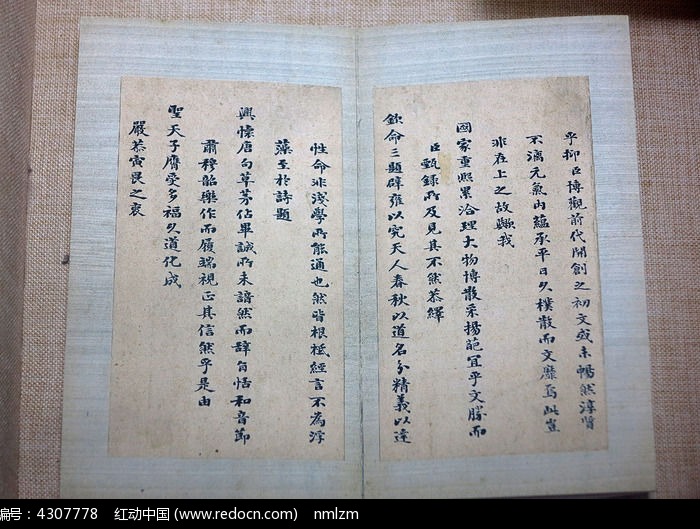 乎抑臣博觀前代開創之初文或未暢然淳質
不漓元氣內蘊承平日久樸散而文靡焉此豈
非在上之故歟我
國家重熙累洽理大物博散采揚葩宜乎文勝而
臣甄錄所及見其不然恭繹
欽命三題辟雍以究天人春秋以道名分精義以達
性命非淺學所能通也然皆根柢經言不為浮
藻至於詩題
興懷唐句草茅佔畢誠所未諳然而辭旨恬和音節
肅穆韶樂作而履端視正其信然乎是由
聖天子膺受多福久道化成
嚴恭寅畏之衷
编号: 4307778 红动中国 (www.redocn.com) nmlzm